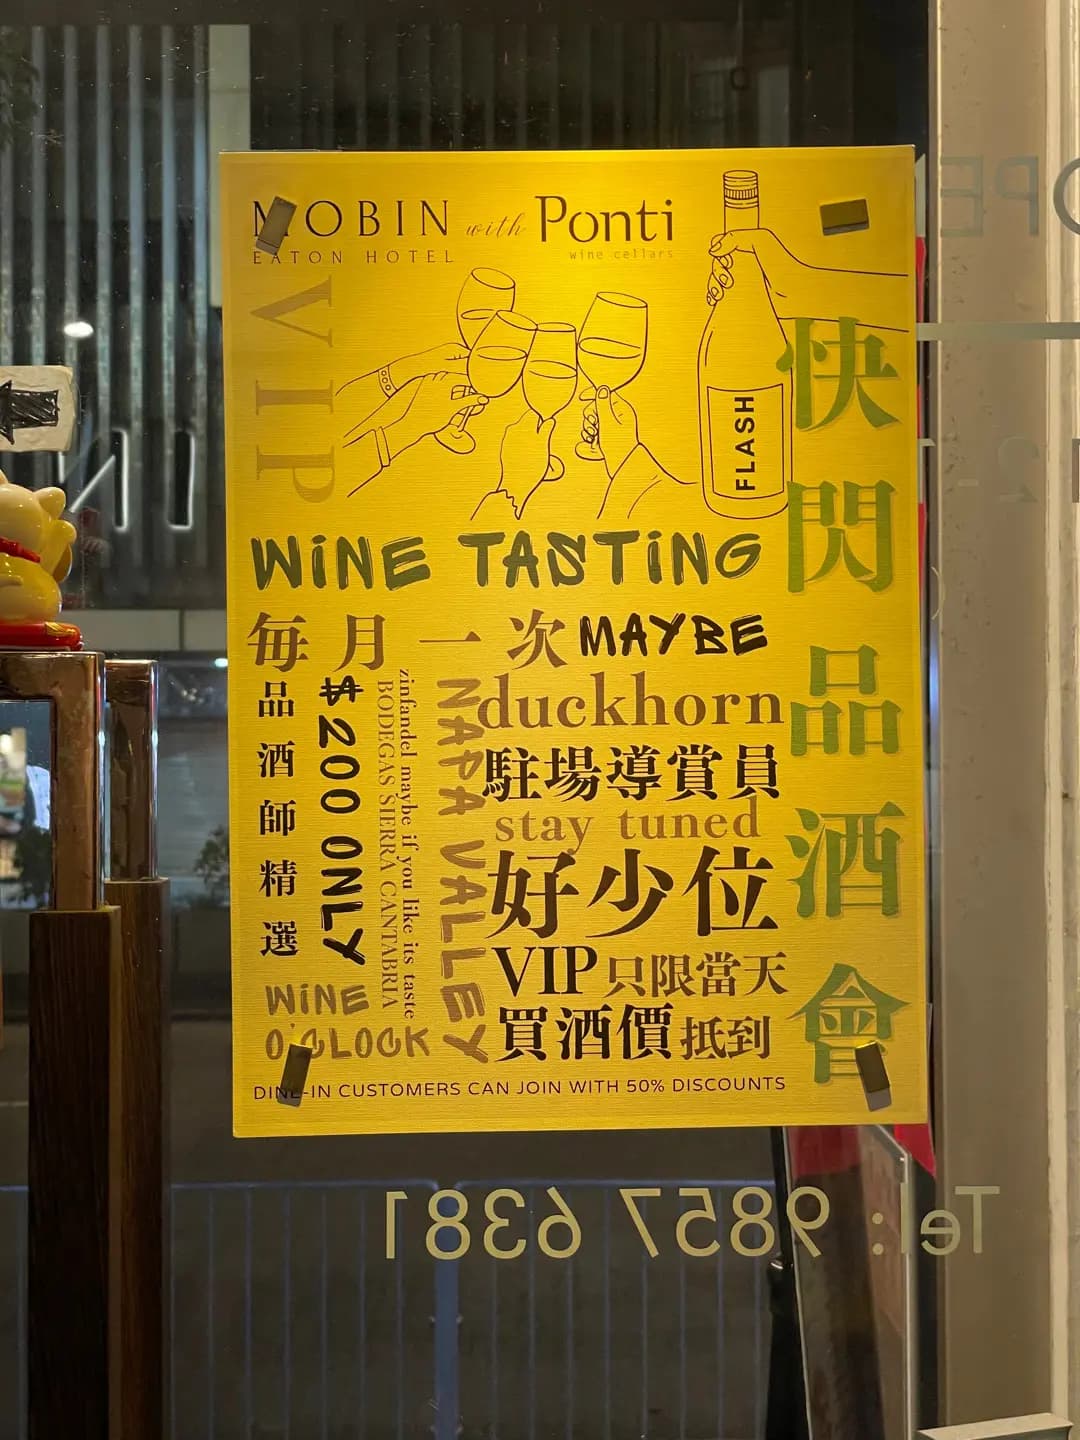 MOBIN with Ponti
EATON HOTEL
wine cellars
VIP
FLASH
快閃品酒會
WiNE TASTiNG
每月一次 MAYBE
品酒師精選
$200 ONLY
zinfandel maybe if you like its taste
BODEGAS SIERRA CANTABRIA
NAPA VALLEY
duckhorn
駐場導賞員
stay tuned
好少位
VIP 只限當天
買酒價 抵到
WiNE
O'CLOCK
DINE-IN CUSTOMERS CAN JOIN WITH 50% DISCOUNTS
Tel: 9857 6381